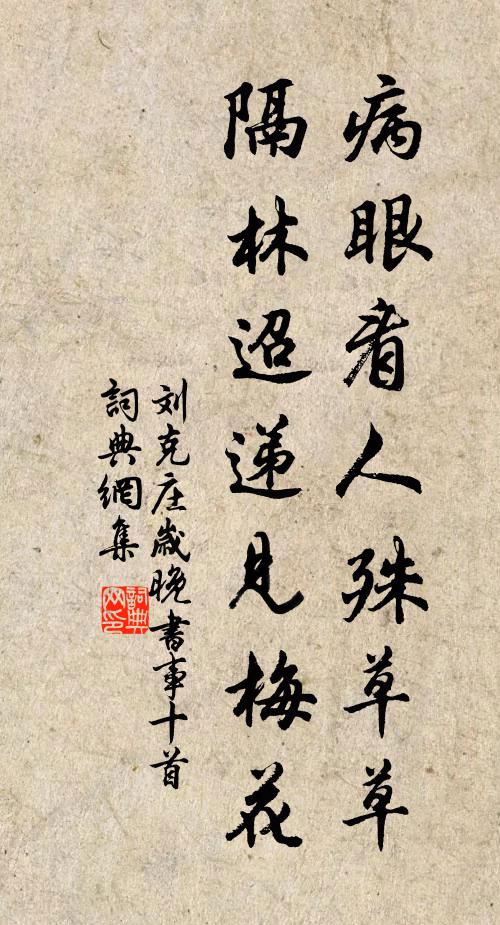 病眼看人殊草草
隔林迢递見梅花
刘克庄歲晚書事十首
詞典網集
詞典网印